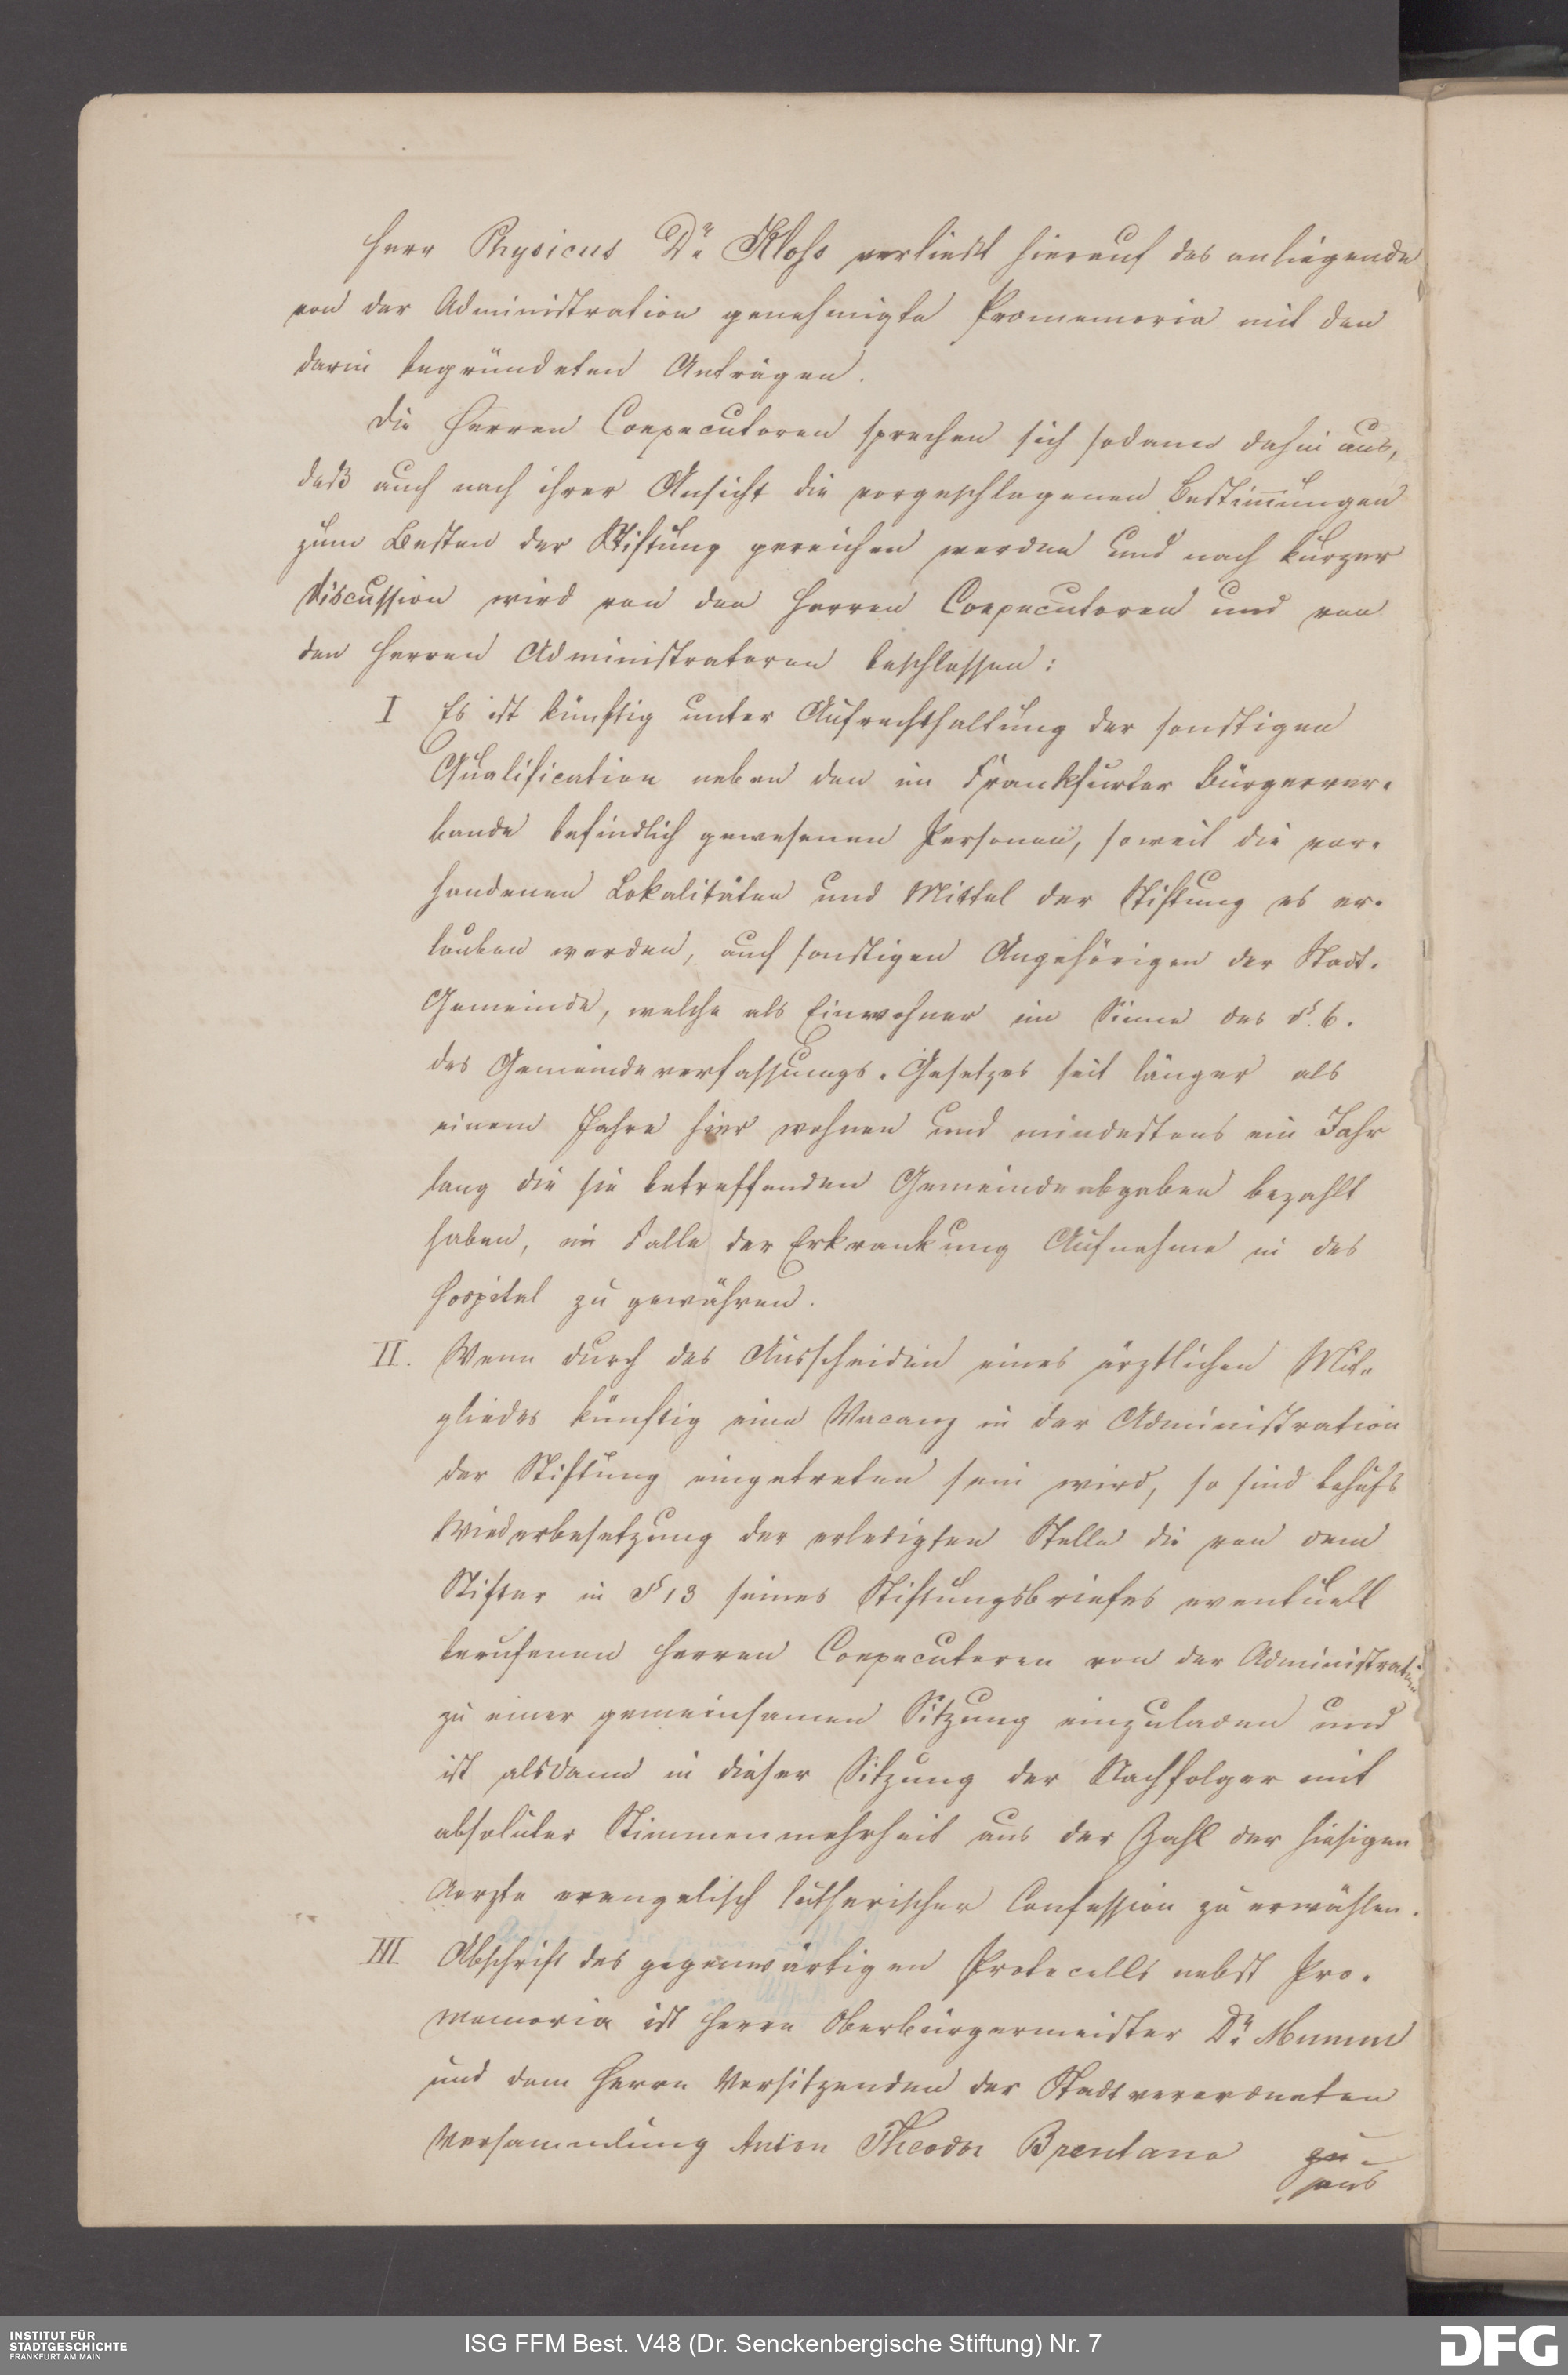 Herr Physicus Dr. Kloß verliest hierauf das anliegende
von der Administration genehmigte Promemoria mit den
darin begründeten Anträgen.
Die Herren Coexecutoren sprechen sich sodann dahin aus,
daß auch nach ihrer Ansicht die vorgeschlagenen Bestim̅ungen
zum Besten der Stiftung gereichen werden und nach kurzer
Discussion wird von den Herren Coexecutoren und von
den Herren Administratoren beschlossen:
I Es ist künftig unter Aufrechthaltung der sonstigen
Qualification neben den im Frankfurter Bürgerver-
bande befindlich gewesenen Personen, soweit die vor-
handenen Lokalitäten und Mittel der Stiftung es er-
lauben werden, auch sonstigen Angehörigen der Stadt-
Gemeinde, welche als Einwohner im Sinne des §. 6.
des Gemeindeverfassungs-Gesetzes seit länger als
einem Jahre hier wohnen und mindestens ein Jahr
lang die sie betreffenden Gemeindeabgaben bezahlt
haben, im Falle der Erkrankung Aufnahme in das
Hospital zu gewähren.
II. Wenn durch das Ausscheiden eines ärztlichen Mit-
gliedes künftig eine Vacanz in der Administration
der Stiftung eingetreten sein wird, so sind behufs
Wiederbesetzung der erledigten Stelle die von dem
Stifter in § 13 seines Stiftungsbriefes eventuell
berufenen Herren Coexecutoren von der Administration
zu einer gemeinsamen Sitzung einzuladen und
ist alsdann in dieser Sitzung der Nachfolger mit
absoluter Stimmenmehrheit aus der Zahl der hiesigen
Aerzte evangelisch lutherischer Confession zu erwählen.
III Abschrift des gegenwärtigen Protocolls nebst Pro-
memoria ist Herrn Oberbürgermeister Dr. Mumm
und dem Herrn Vorsitzenden der Stadtverordneten
Versammlung Anton Theodor Brentano zu-
INSTITUT FÜR
STADTGESCHICHTE
FRANKFURT AM MAIN
ISG FFM Best. V48 (Dr. Senckenbergische Stiftung) Nr. 7
DFG